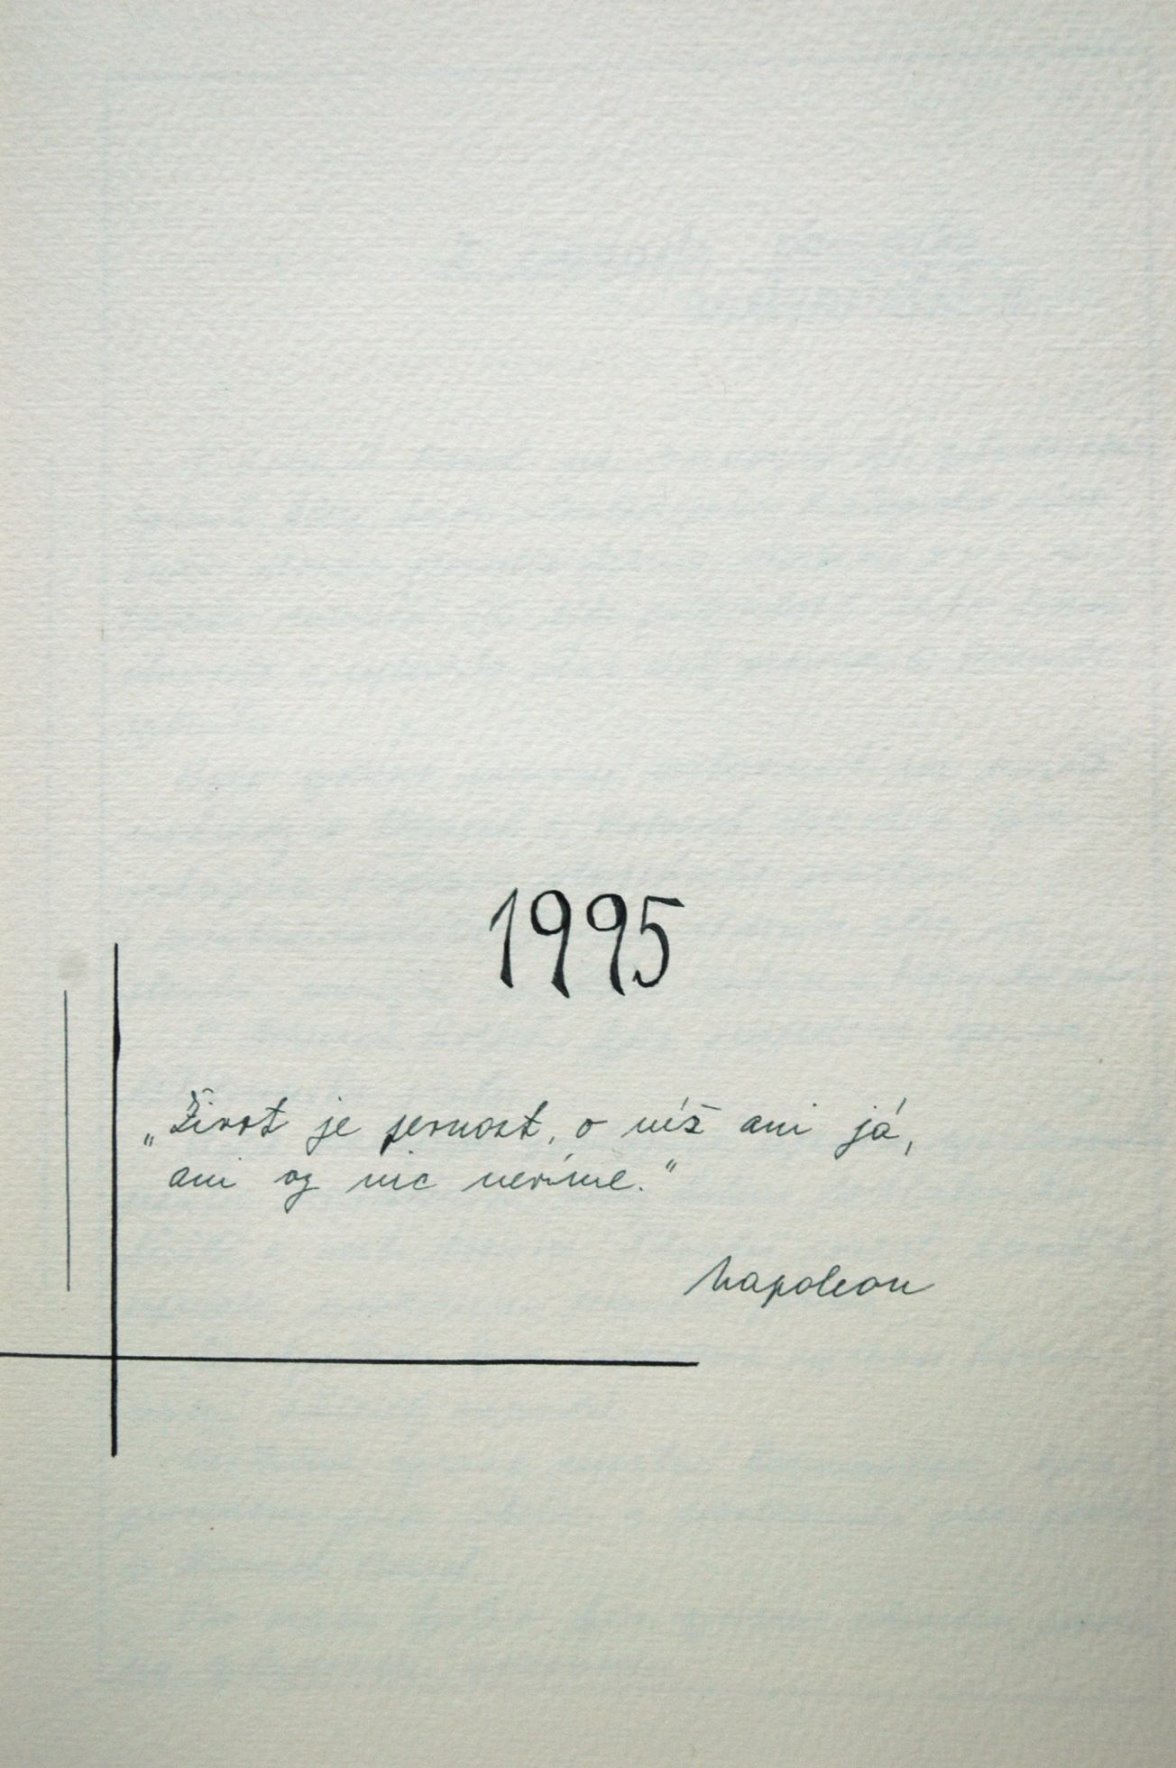 1995
„Život je pevnost, o níž ani já,
ani vy nic nevíme.“
Napoleon